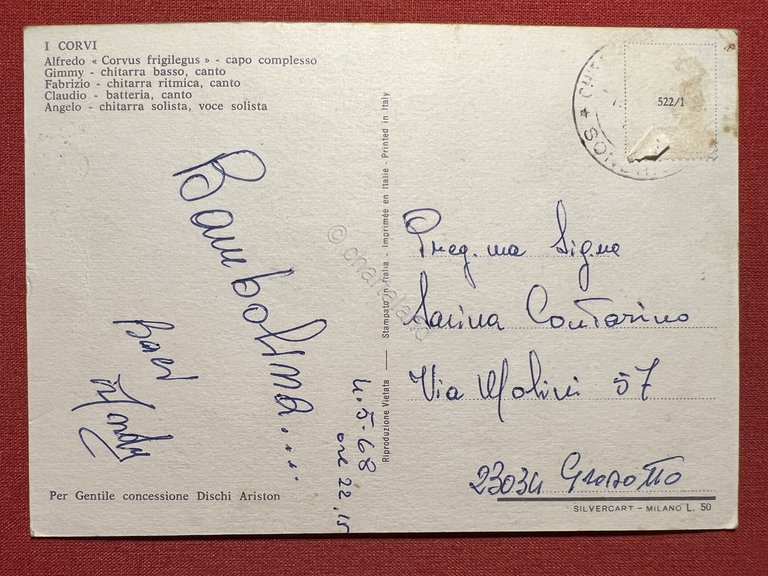 I CORVI
Alfredo « Corvus frigilegus » - capo complesso
Gimmy - chitarra basso, canto
Fabrizio - chitarra ritmica, canto
Claudio - batteria, canto
Angelo - chitarra solista, voce solista
Bambolina...
4.5.68
ore 22,15
Per Gentile concessione Dischi Ariston
Riproduzione Vietata — Stampato in Italia - Imprimée en Italie - Printed in Italy
522/1
Preg.ma Sig.na
Contarino
Via Molini 57
23034 Grosotto
SILVERCART - MILANO L. 50